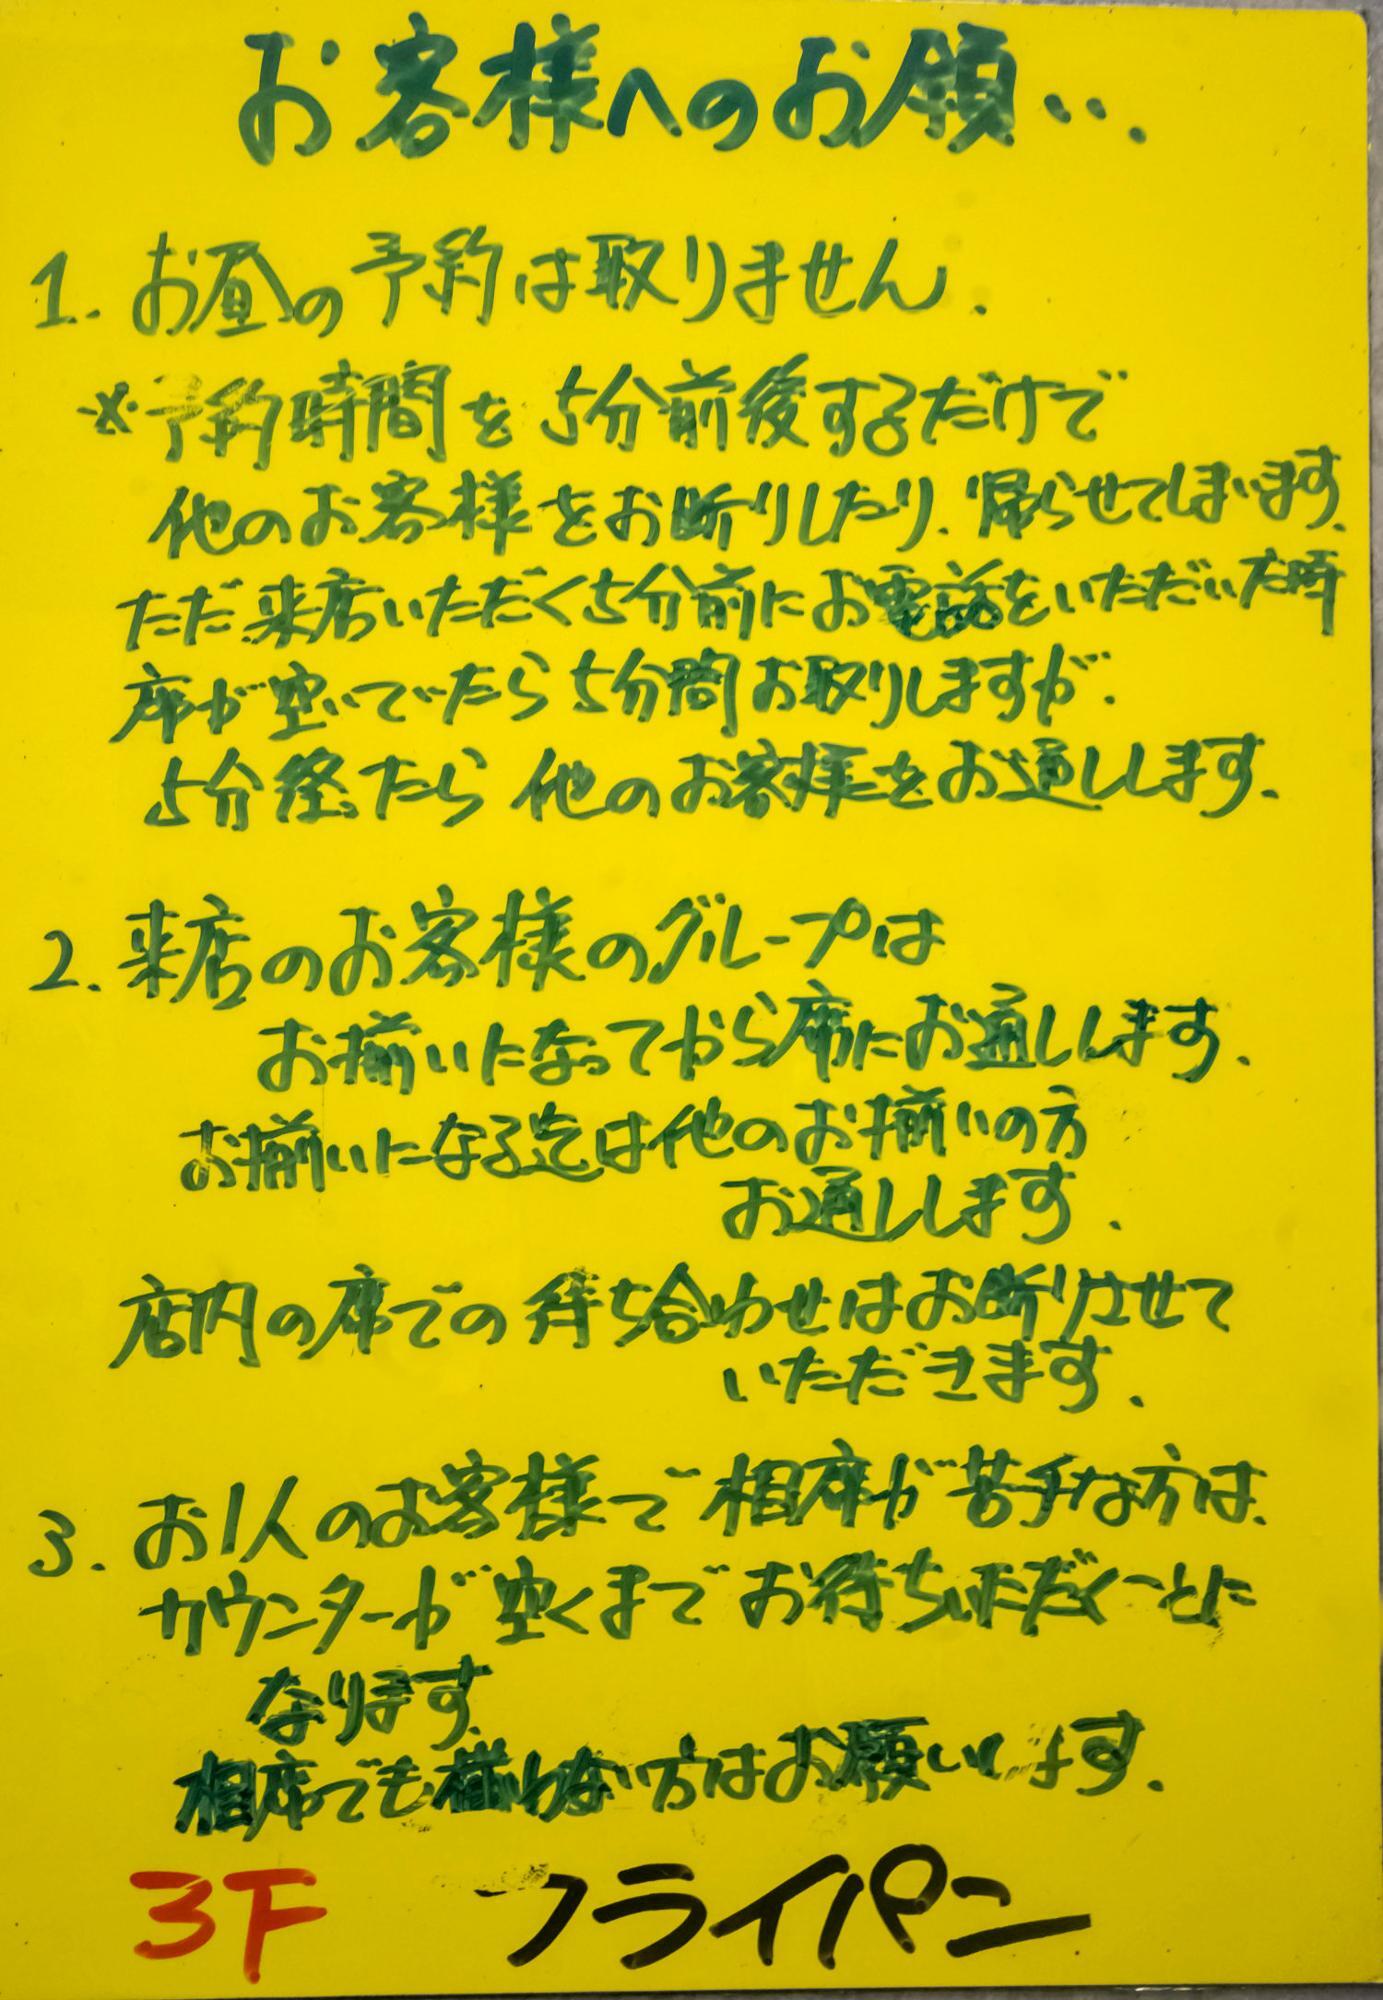 お客様へのお願い…
1. お昼の予約は取りません.
※予約時間を5分前後するだけで
他のお客様をお断りしたり、帰らせてしまいます.
ただ来店いただく5分前にお電話をいただいた時
席が空いていたら5分間お取りしますが.
5分経たら他のお客様をお通しします.
2. 来店のお客様のグループは
お揃いになってから席にお通しします.
お揃いになる迄は他のお揃いの方
お通しします.
店内の席での待ち合わせはお断りさせて
いただきます.
3. お1人のお客様で相席が苦手な方は.
カウンターが空くまでお待ちいただくことに
なります.
相席でも構わない方はお願いします.
3F フライパン